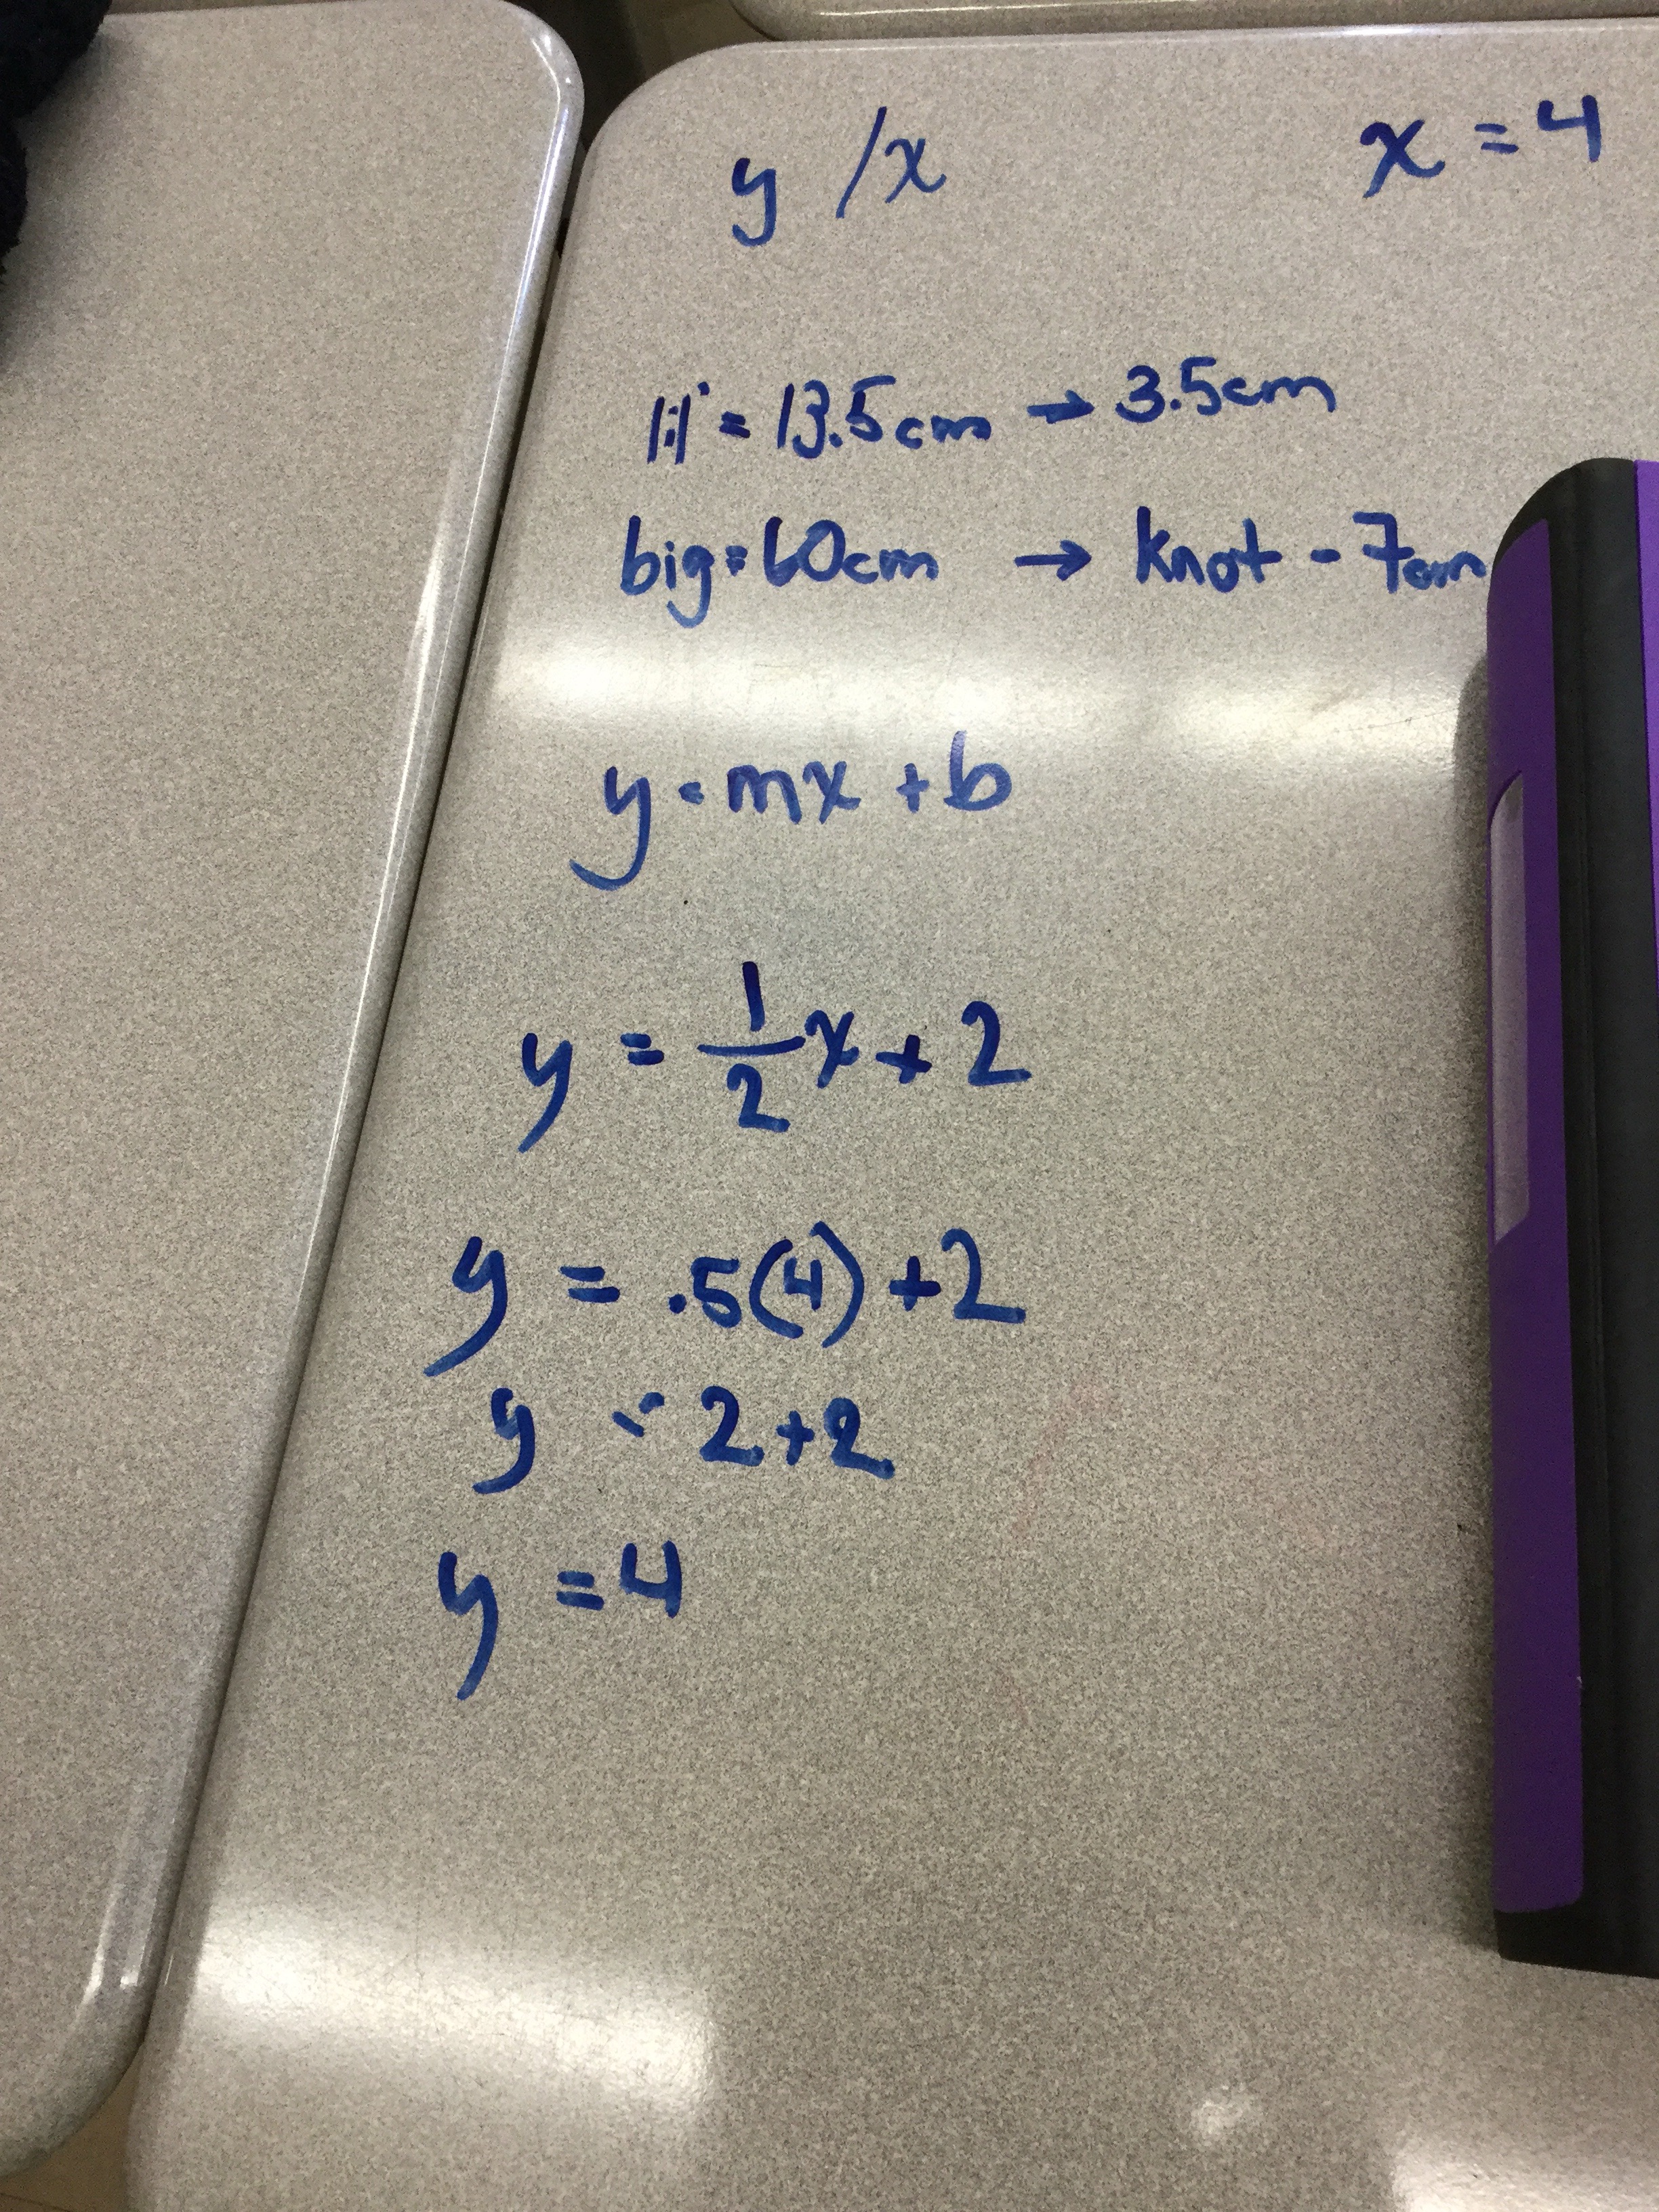 y /x x = 4
= 13.5cm → 3.5cm
big = 60cm → knot - 7cm
y = mx + b
y = 1/2 x + 2
y = .5(4) + 2
y = 2+2
y = 4